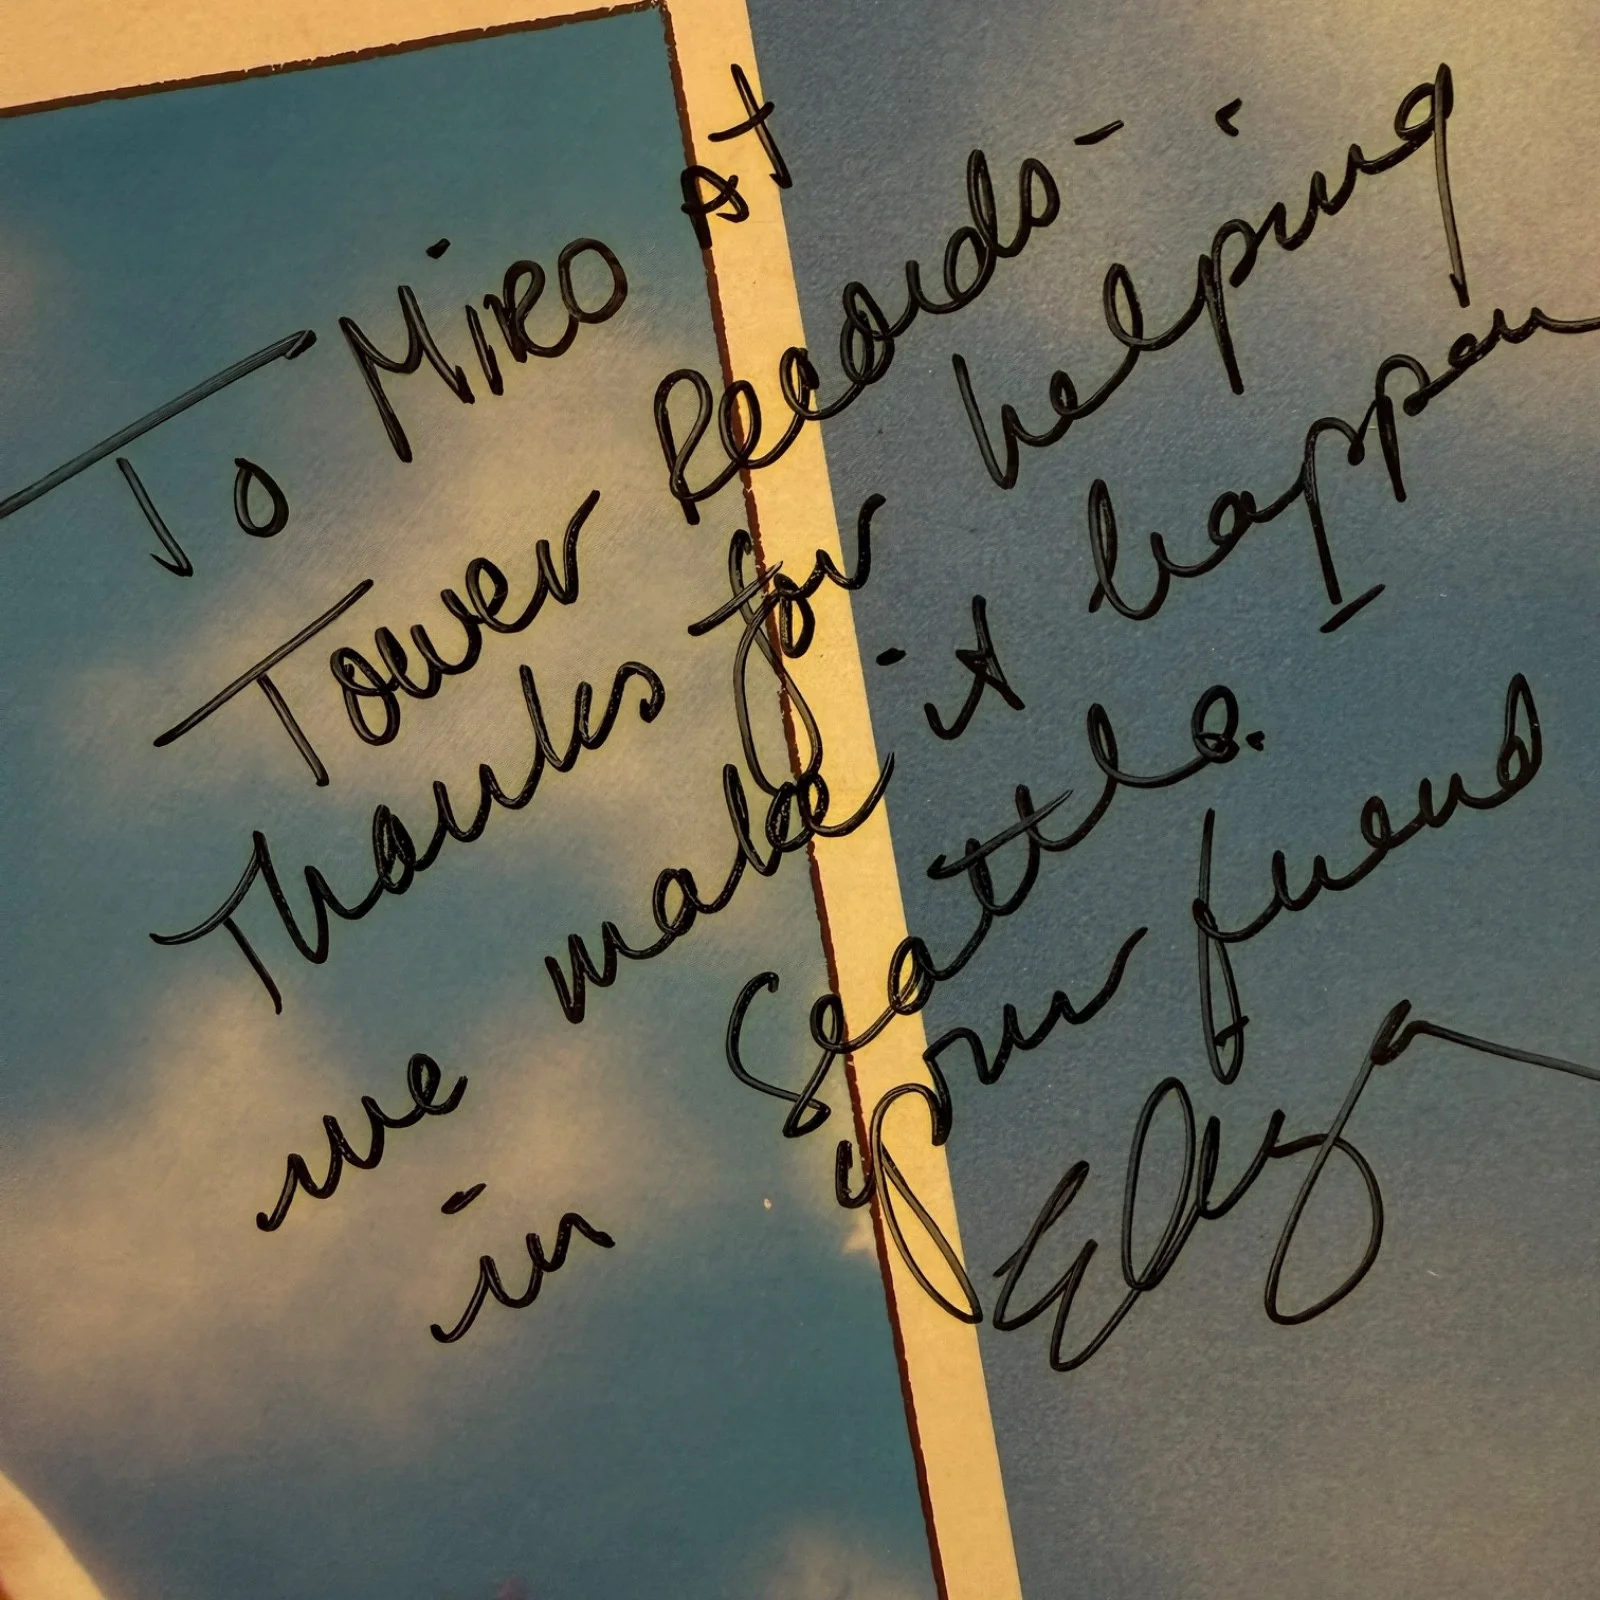 To MIRO At
Tower Records-
Thanks for helping
me make it happen
in Seattle.
your friend